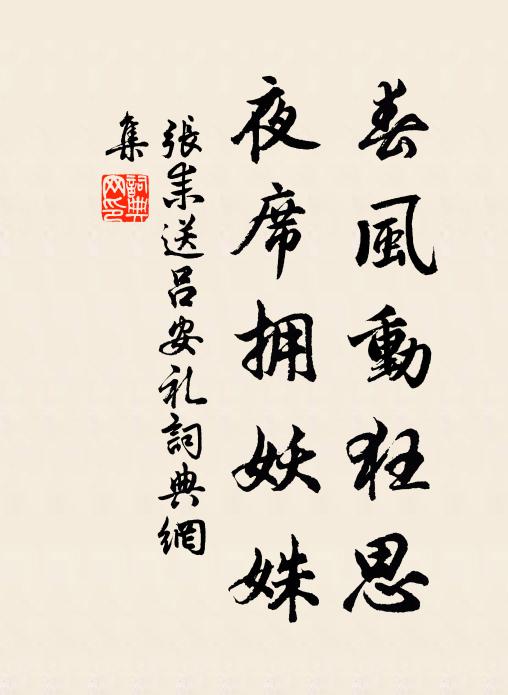 春風動狂思
夜席拥妖姝
張耒送吕安礼詞典網
集
詞典網印